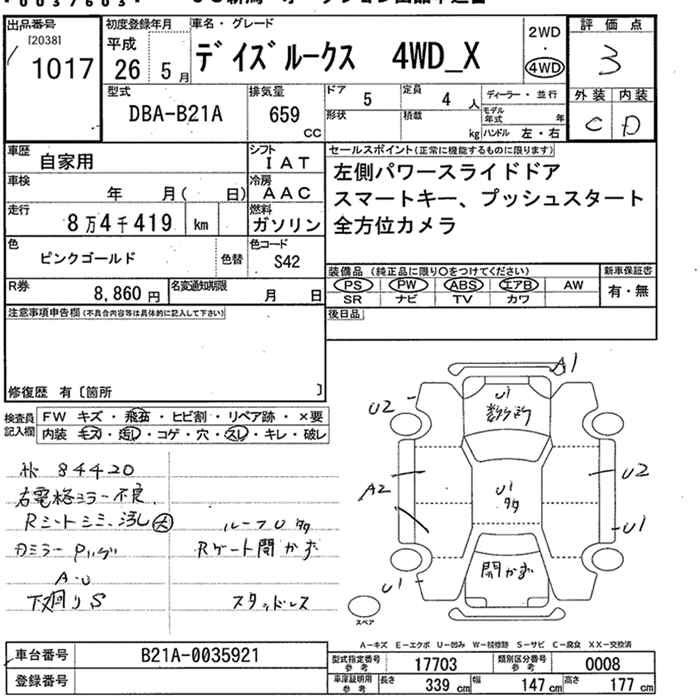 出品番号
[2038]
1017
初度登録年月
平成
26 5月
車名・グレード
デイズルークス 4WD_X
2WD
・
4WD
評価点
3
外装 内装
C D
型式
DBA-B21A
排気量
659
CC
ドア 5
定員 4 人
形状
積載 kg
ディーラー・並行
モデル年式 年
ハンドル 左・右
車歴
自家用
シフト
IAT
車検
年 月( 日)
冷房
AAC
走行
8万4千419 km
燃料
ガソリン
色
ピンクゴールド
色替
色コード
S42
R券
8,860 円
名変通知期限
月 日
セールスポイント(正常に機能するものに限ります)
左側パワースライドドア
スマートキー、プッシュスタート
全方位カメラ
装備品 (純正品に限り〇をつけてください)
PS PW ABS エアB AW
SR ナビ TV カワ
新車保証書
有・無
後日品
注意事項申告欄(不具合内容等は具体的に記入して下さい)
修復歴 有〔箇所 〕
検査員
記入欄
FW キズ・飛石・ヒビ割・リペア跡・×要
内装 キズ・汚レ・コゲ・穴・スレ・キレ・破レ
84420
右電格ミラー不良
Rシートシミ、汚レ大
A・U
下廻りS
ルーフU多
Rゲート開かず
スタッドレス
A1
U1
数ヶ所
U2
A2
U1
多
U2
U1
U1
開かず
スペア
A-キズ E-エクボ U-凹み W-補修跡 S-サビ C-腐食 XX-交換済
車台番号
B21A-0035921
登録番号
型式指定番号
参考
17703
類別区分番号
参考
0008
車庫証明用
参考
長さ 339 cm
幅 147 cm
高さ 177 cm